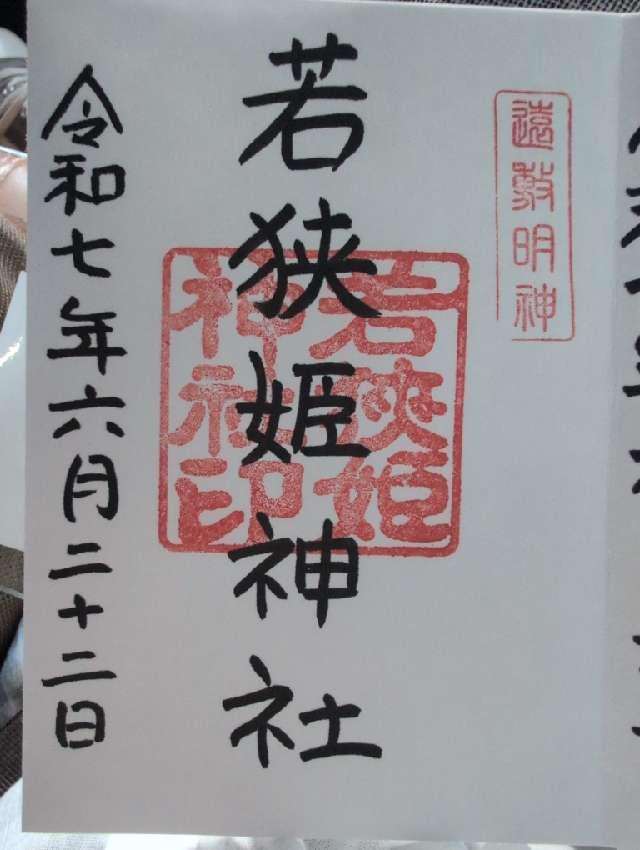 遠敷明神
若狭姫神社
若狭姫
神社印
令和七年六月二十二日